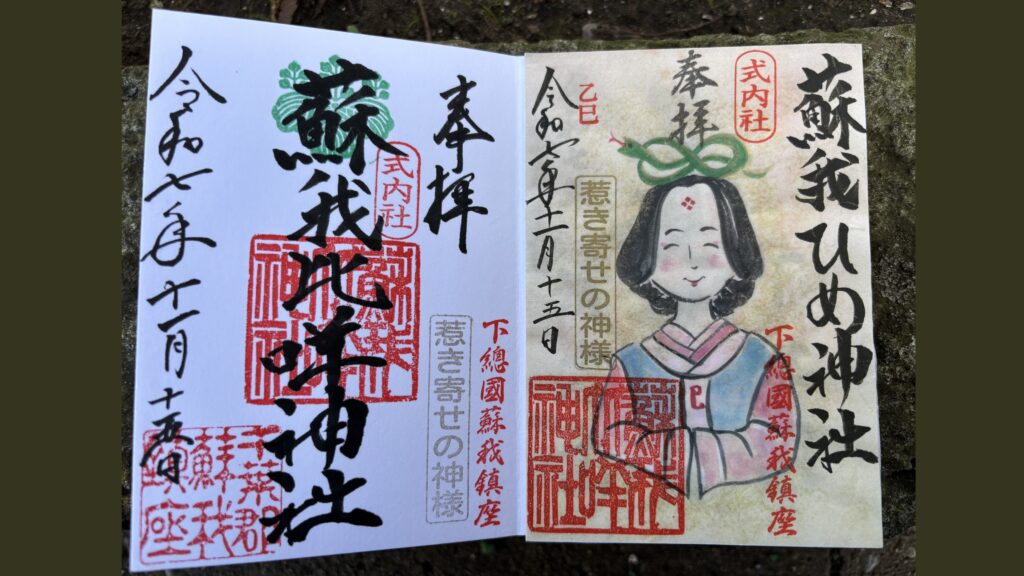 奉拝
式内社
蘇我比咩神社
下總國蘇我鎮座
惹き寄せの神様
令和七年十一月十五日
千葉郡
蘇我
鎮座
蘇我ひめ神社
式内社
奉拝
下總國蘇我鎮座
惹き寄せの神様
乙巳
令和七年十一月十五日
巳
蘇我
比咩
神社